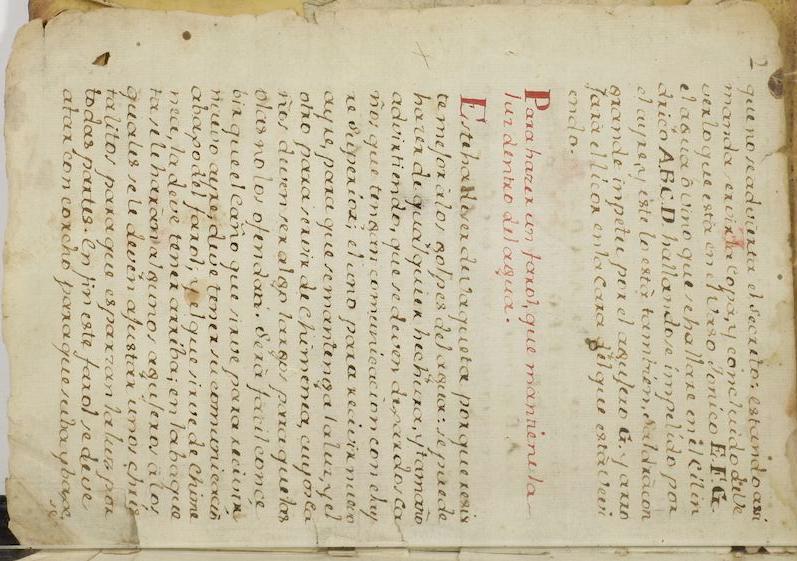 2
que no se advierta el secreto: estando assi
manda, servir la copa, y concluido debe
ver lo que está en el Vaso Jonico E F G.
el agua ò vino que se hallare en el cilin
drico A B C D. hallandose impelido por
el ayre, y este lo està tambien, saldrà con
grande impetu por el agujero G. y arro
jarà el licor en la Cara del que està vevi
endo.
Para hacer un farol que mantiene la
luz dentro del agua.
Este ha de ser de vaqueta porque resis
te mejor à los golpes del agua: se puede
hazer de qualquier hechura, y tamaño
advirtiendo, que se deven dexar dos ca
ños que tengan comunicacion con el ay
re superior; el uno para recivir nuevo
ayre, para que se mantenga la luz, y el
otro para servir de chimenea, cuyos ca
ñones duren ser algo largos para que las
olas no los ofendan. Serà facil conce
bir que el Caño que sirve para recivir
nuevo ayre, deve tener su comunicacion
abajo del farol; y el que sirve de chime
nea, la deve tener arriba; en la baque
ta se le haràn algunos agujeros à los
quales se le deven ajustar unos chris
talitos para que esparzan la luz por
todas partes. En fin este farol se deve
atar con corcho para que suba y baxe
se